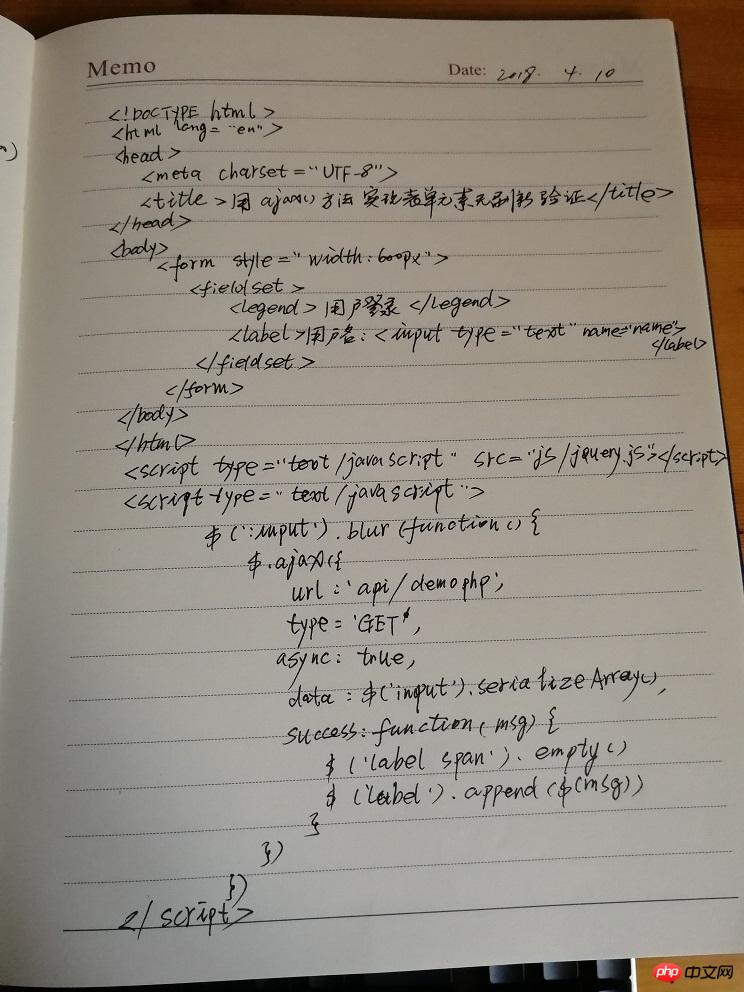 Memo
Date: 2018. 4. 10
<!DOCTYPE html>
<html lang="en">
<head>
<meta charset="UTF-8">
<title>用 ajax() 方法 实现表单元素无刷新 验证</title>
</head>
<body>
<form style="width:600px">
<fieldset>
<legend>用户登录</legend>
<label>用户名:<input type="text" name="name">
</label>
</fieldset>
</form>
</body>
</html>
<script type="text/javascript" src="js/jquery.js"></script>
<script type="text/javascript">
$(':input').blur(function(){
$.ajax({
url:'api/demo php',
type='GET',
async: true,
data: $('input').serializeArray(),
success: function(msg){
$('label span').empty()
$('label').append($(msg))
}
})
})
</script>
php 中文网